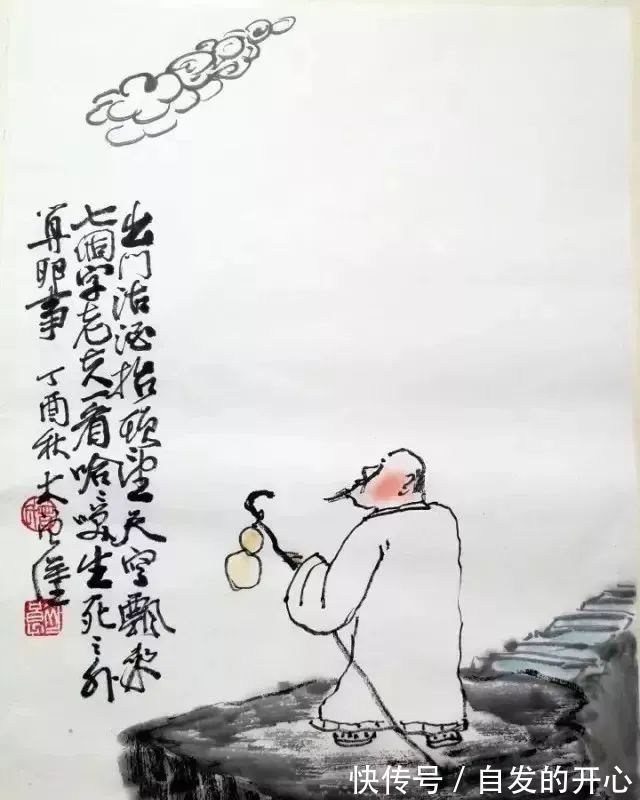 出门沽酒抬頭望天空飄来
七個字老夫一看哈哈笑生死之外
算事 丁酉秋
快传号 / 自发的开心